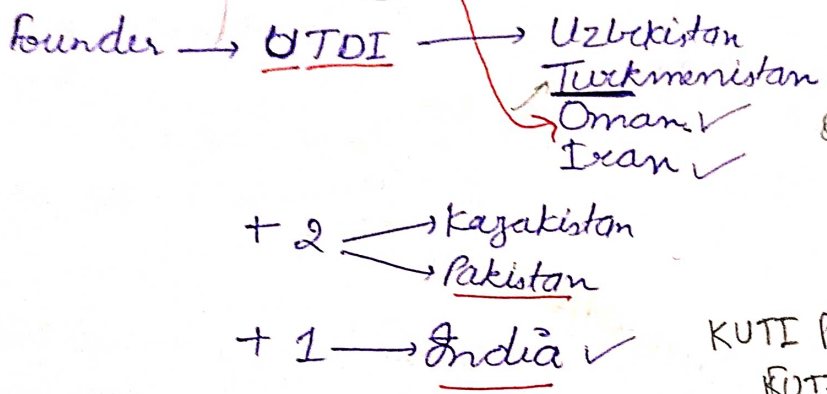 Founder → UTOI → Uzbekistan
Turkmenistan
Oman ✓
Iran ✓
+ 2 → Kazakistan
→ Pakistan
+ 1 → India ✓ KUTI